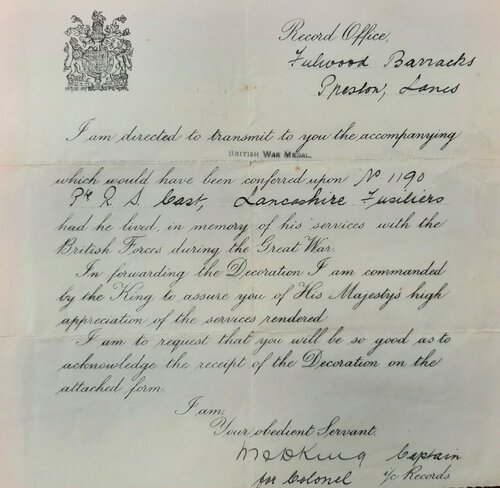 Record Office,
Fulwood Barracks
Preston, Lancs
I am directed to transmit to you the accompanying
BRITISH WAR MEDAL.
which would have been conferred upon No 1190
Pte R S Cast, Lancashire Fusiliers
had he lived, in memory of his services with the
British Forces during the Great War.
In forwarding the Decoration I am commanded
by the King to assure you of His Majesty's high
appreciation of the services rendered.
I am to request that you will be so good as to
acknowledge the receipt of the Decoration on the
attached form.
I am,
Your obedient Servant,
King Captain
for Colonel i/c Records